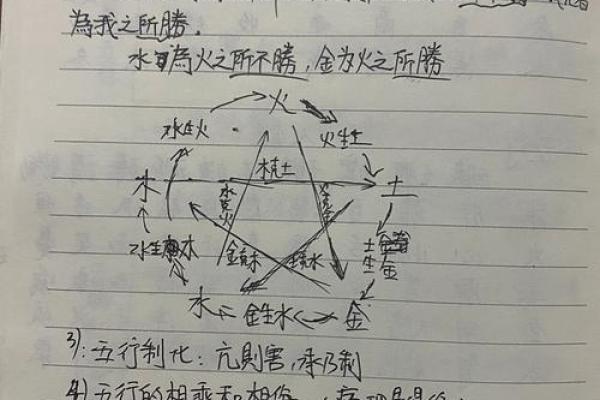 為我之所勝.
水為火之所不勝,金為火之所勝
火
木生火
火生土
木
木克土
土
水克火
火克金
水生木
金克木
土克水
土生金
水
金生水
金
3):五行制化:亢則害,承乃制
4)五行的相乘和相侮